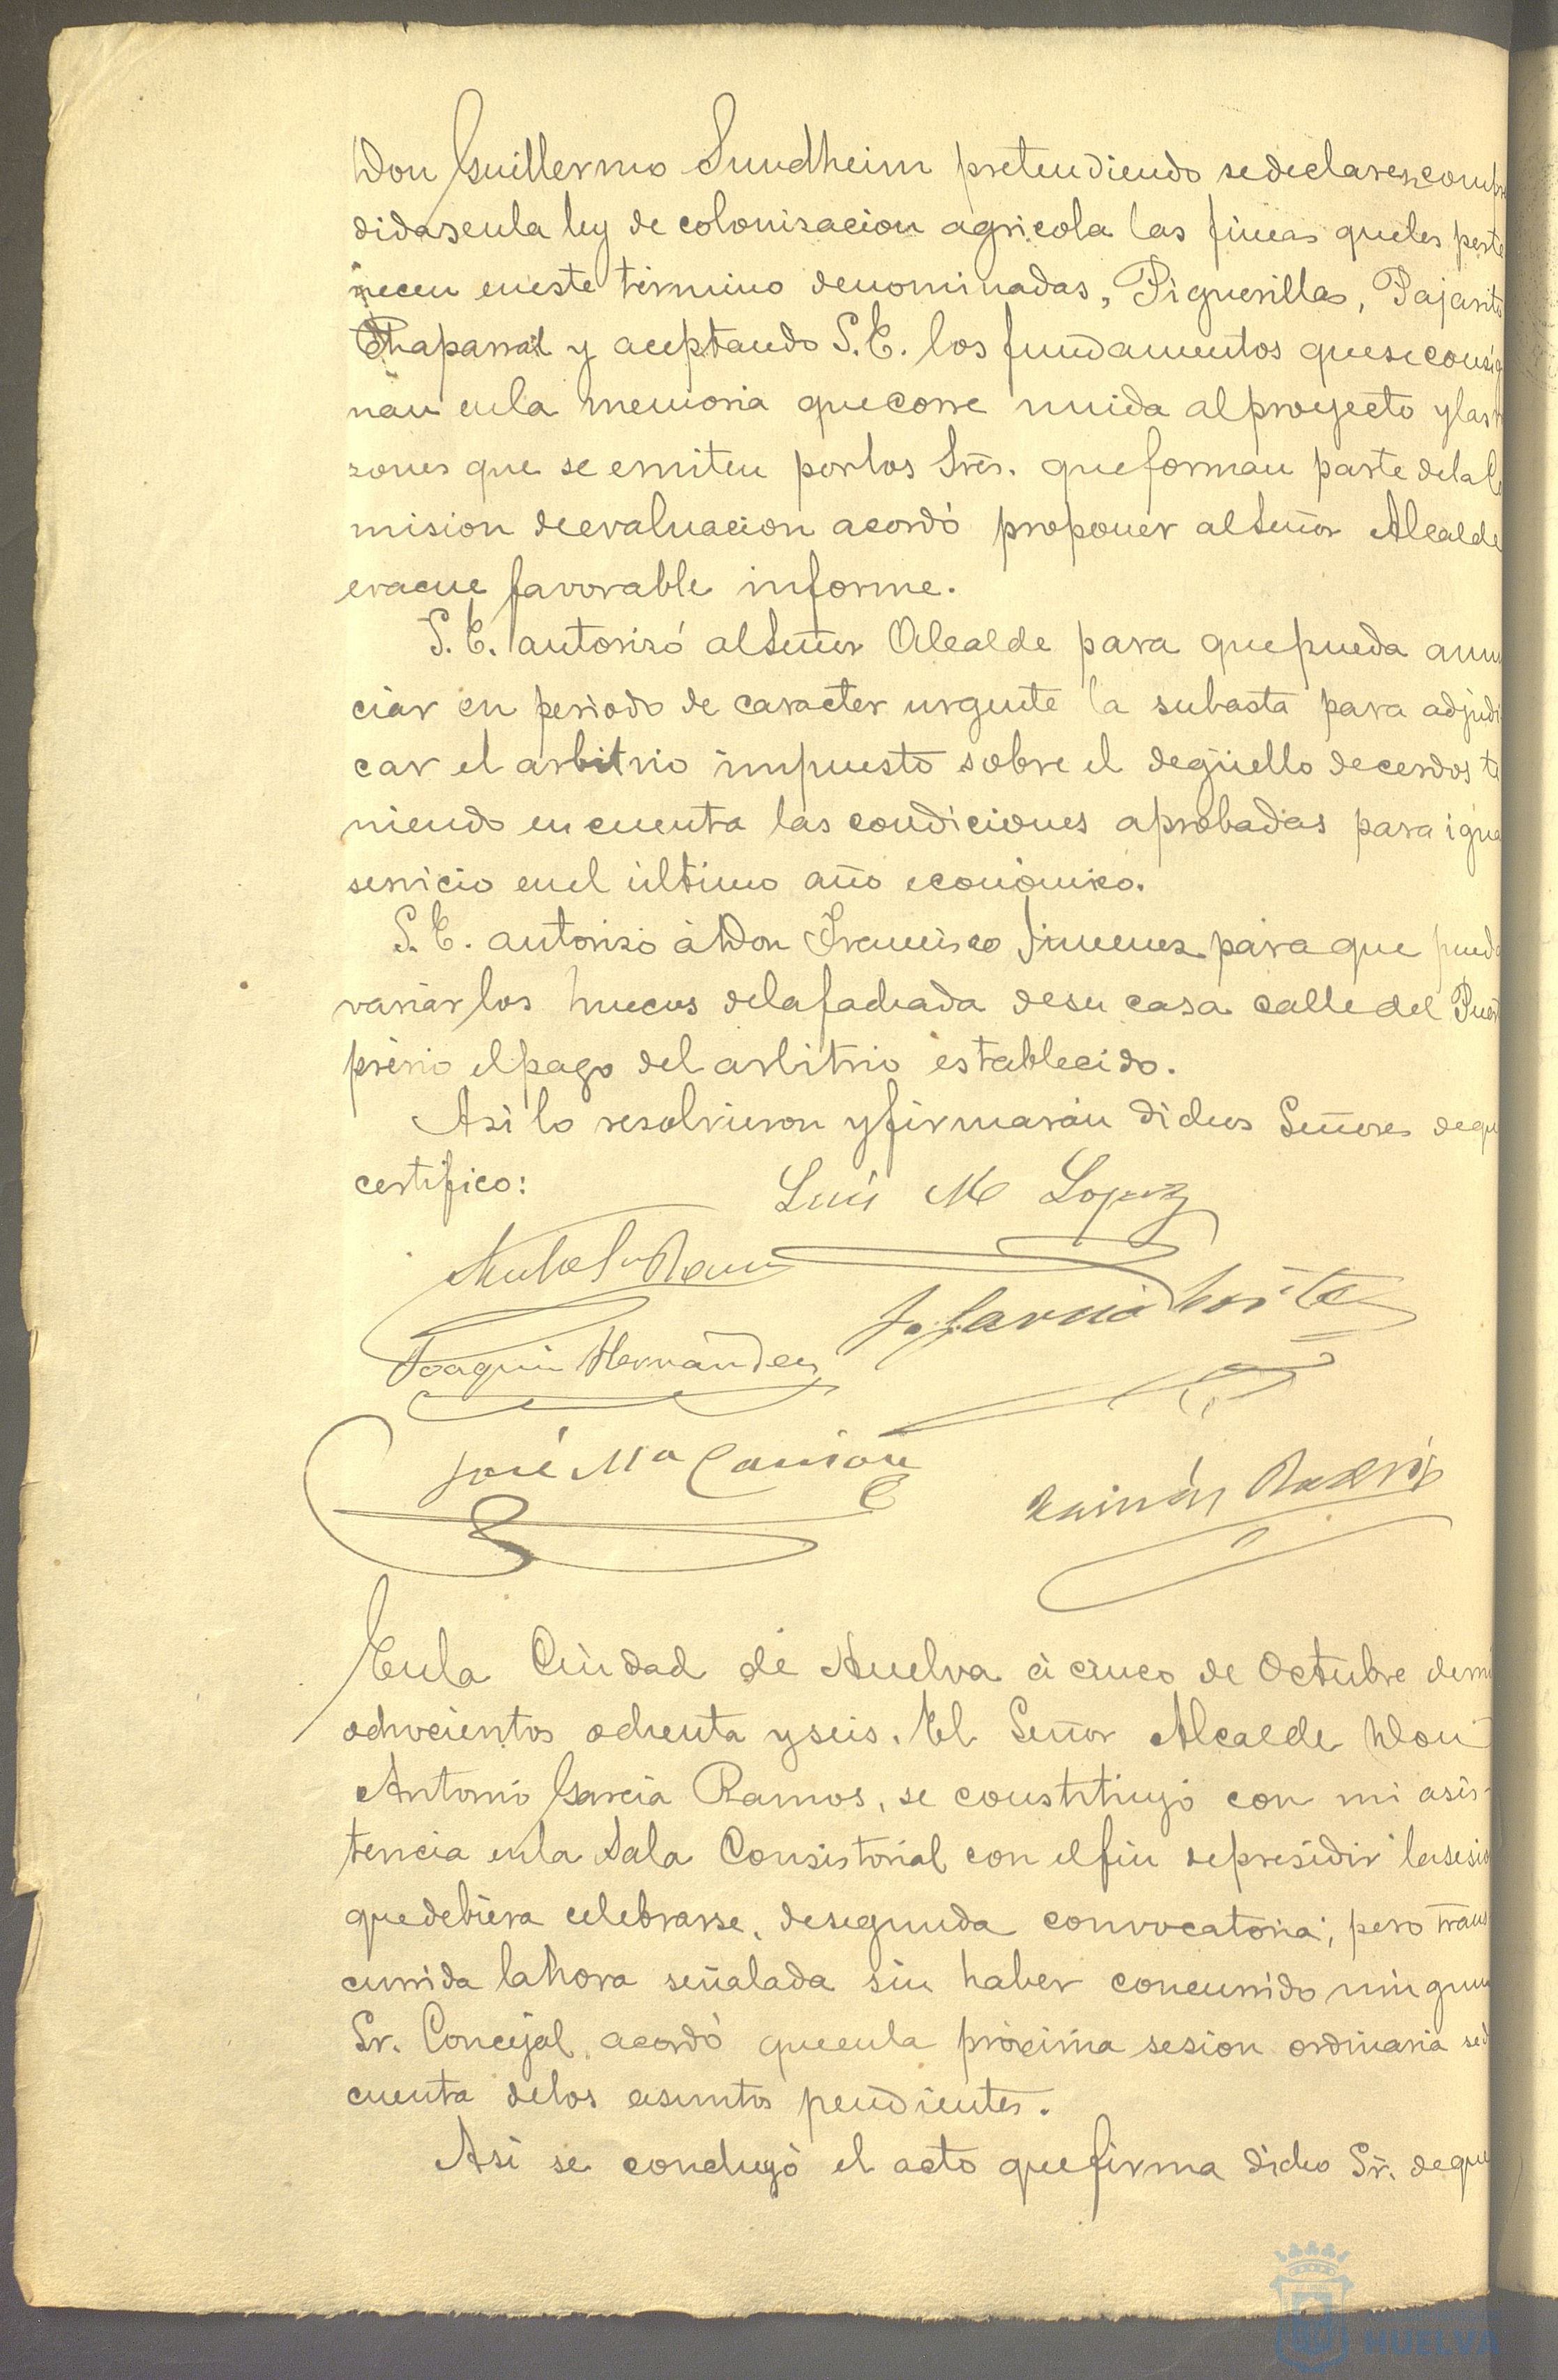 Don Guillermo Sundheim pretendiendo se declaren compre
didas en la ley de colonisacion agricola las fincas que les perte
necen en este término denominadas, Piguerillas, Pajarito
Chaparral y aceptando S. E. los fundamentos que se consig
nan en la memoria que corre unida al proyecto y las r
zones que se emiten por los Sres. que forman parte de la Co
mision de evaluacion acordó proponer al Señor Alcalde
evacue favorable informe.
S. E. autorizó al Señor Alcalde para que pueda anun
ciar en periodo de caracter urgente la subasta para adjudi
car el arbitrio impuesto sobre el degüello de cerdos te
niendo en cuenta las condiciones aprobadas para igua
servicio en el último año económico.
S. E. autorizó á Don Francisco Jimenez para que pueda
variar los huecos de la fachada de su casa calle del Puert
prévio el pago del arbitrio establecido.
Asi lo resolvieron y firmarán dichos Señores de que
certifico:
Luis M Lopez
J. Garcia
Joaquin Hernández
José Ma
Ramón
En la Ciudad de Huelva á cinco de Octubre de mi
ochocientos ochenta y seis. El Señor Alcalde Don
Antonio Garcia Ramos, se constituyó con mi asis-
tencia en la Sala Consistorial con el fin de presidir la sesio
que debiera celebrarse, de segunda convocatoria; pero trans
currida la hora señalada sin haber concurrido ningun
Sr. Concejal acordó que en la próxima sesion ordinaria se d
cuenta de los asuntos pendientes.
Asi se concluyó el acto que firma dicho Sr. de que
HUELVA